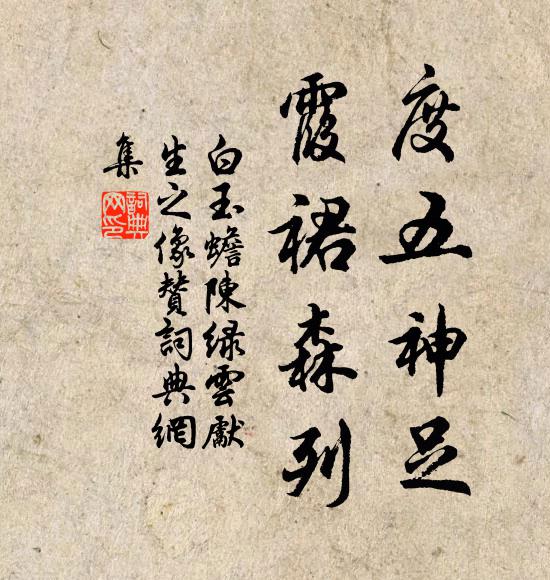 度五神足
霞裙森列
白玉蟾陳綠雲獻
生之像贊詞典網
集
詞典网印